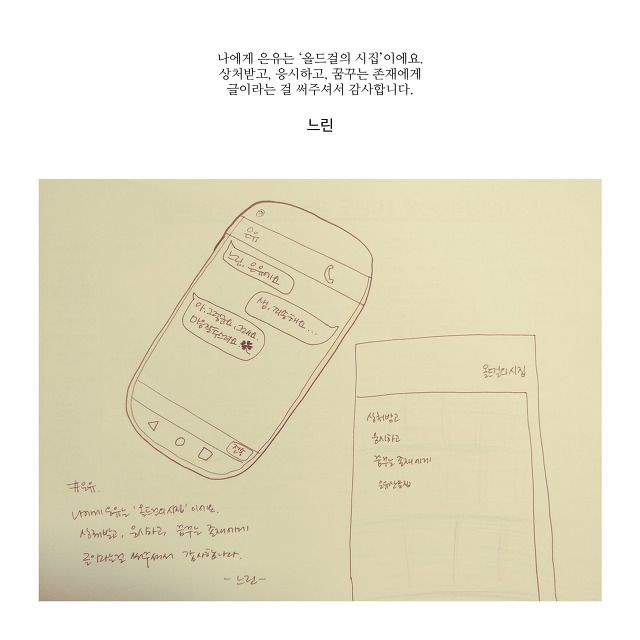 나에게 은유는 ‘올드걸의 시집’이에요.
상처받고, 응시하고, 꿈꾸는 존재에게
글이라는 걸 써주셔서 감사합니다.
느린
은유
느린, 은유예요
쌤, 죄송해요...
아, 그렇군요, 그래요.
전송
올드걸의 시집
상처받고
응시하고
꿈꾸는 존재에게
은유산문집
#은유.
나에게 은유는 '올드걸의 시집' 이에요.
상처받고, 응시하고, 꿈꾸는 존재에게
글이라는걸 써주셔서 감사합니다.
- 느린 -